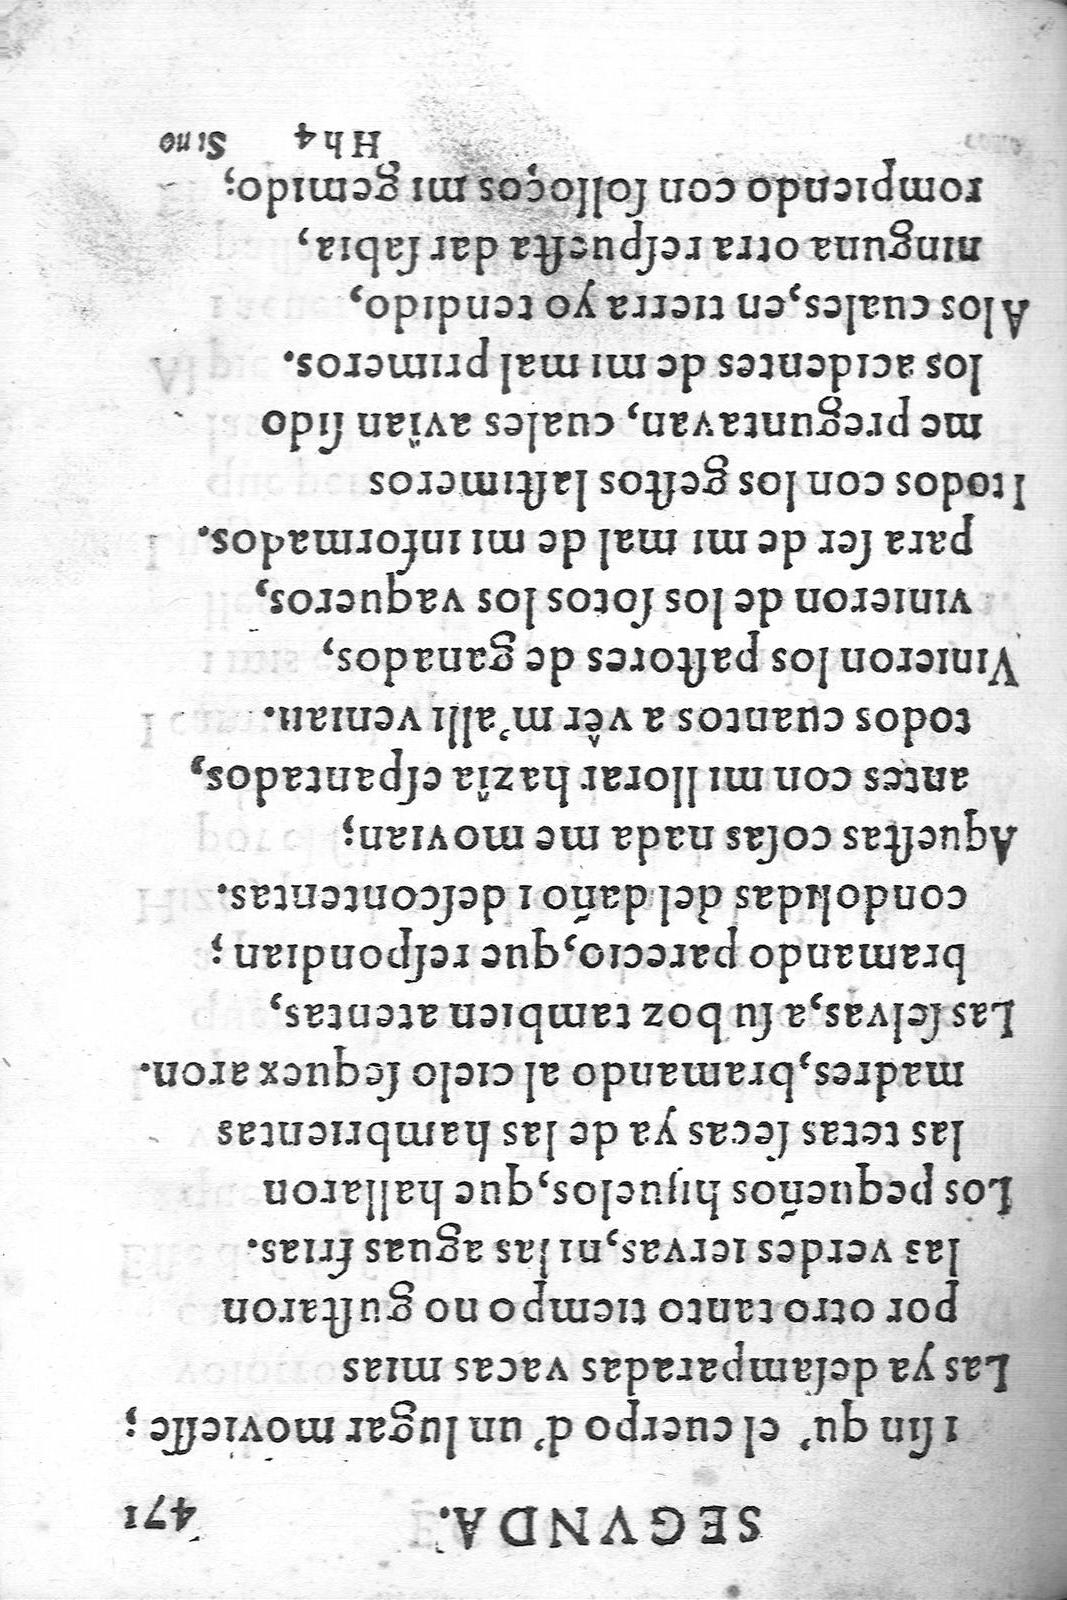 SEGVNDA. 471
ı ſin qu' el cuerpo d' un lugar movieſſe;
Las ya deſamparadas vacas mias
por otro tanto tiempo no guſtaron
las verdes iervas, ni las aguas frias.
Los pequeños hijuelos, que hallaron
las tetas ſecas ya de las hambrientas
madres, bramando al cielo ſequexaron.
Las ſelvas, a ſu boz tambien atentas,
bramando parecio, que reſpondian;
condolidas del daño ı deſcontentas.
Aqueſtas coſas nada me movian;
antes con mi llorar hazïa eſpantados,
todos cuantos a vêr m' alli venian.
Vinieron los paſtores de ganados,
vinieron de los ſotos los vaqueros,
para ſer de mi mal de mi informados.
I todos con los geſtos laſtimeros
me preguntavan, cuales avïan ſido
los acidentes de mi mal primeros.
A los cuales, en tierra yo tendido,
ninguna otra reſpueſta dar ſabia,
rompiendo con ſolloços mi gemido;
Hh4 Sino